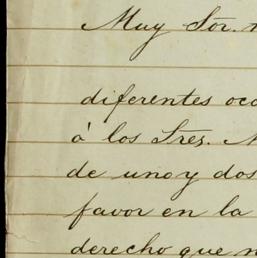 Muy Sor.
diferentes
á los Sres.
de uno y dos
favor en la
derecho que